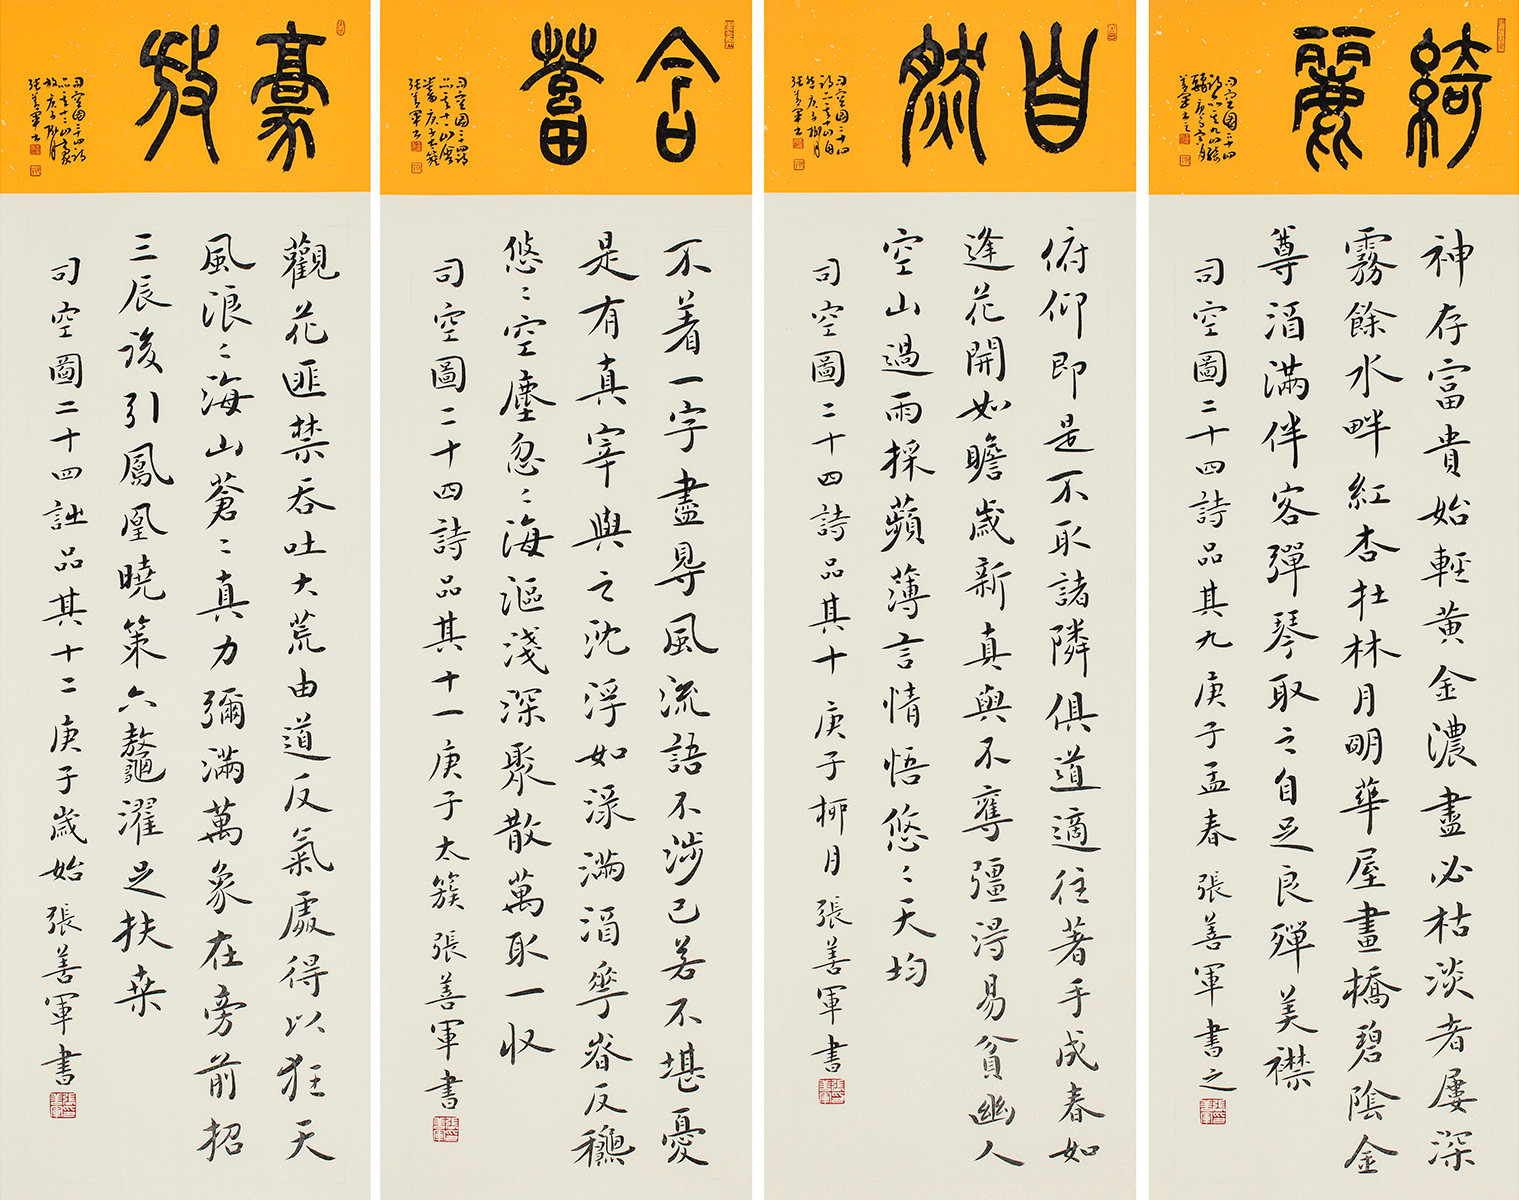 綺麗
司空圖二十四
神存富貴始輕黃金濃盡必枯淡者屢深
霧餘水畔紅杏在林月明華屋畫橋碧陰金
尊酒滿伴客彈琴取之自足良殫美襟
司空圖二十四詩品其九庚子孟春張善軍書之
自然
司空圖二十四
張善軍書
俯仰即是不取諸隣俱道適往著手成春如
逢花開如瞻歲新真與不奪彊得易貧幽人
空山過雨採蘋薄言情悟悠〻天均
司空圖二十四詩品其十庚子柳月張善軍書
含蓄
司空圖二十四詩
蓄庚子太簇
張善軍書
不着一字盡得風流語不涉己若不堪憂
是有真宰與之沈浮如淥滿酒花時反穐
悠〻空塵忽〻海漚淺深聚散萬取一收
司空圖二十四詩品其十一庚子太簇張善軍書
豪放
司空圖二十四詩
放庚子柳月
張善軍書
觀花匪禁吞吐大荒由道反氣處得以狂天
風浪〻海山蒼〻真力彌滿萬象在旁前招
三辰後引鳳凰曉策六鼇濯足扶桒
司空圖二十四詩品其十二庚子歲始張善軍書